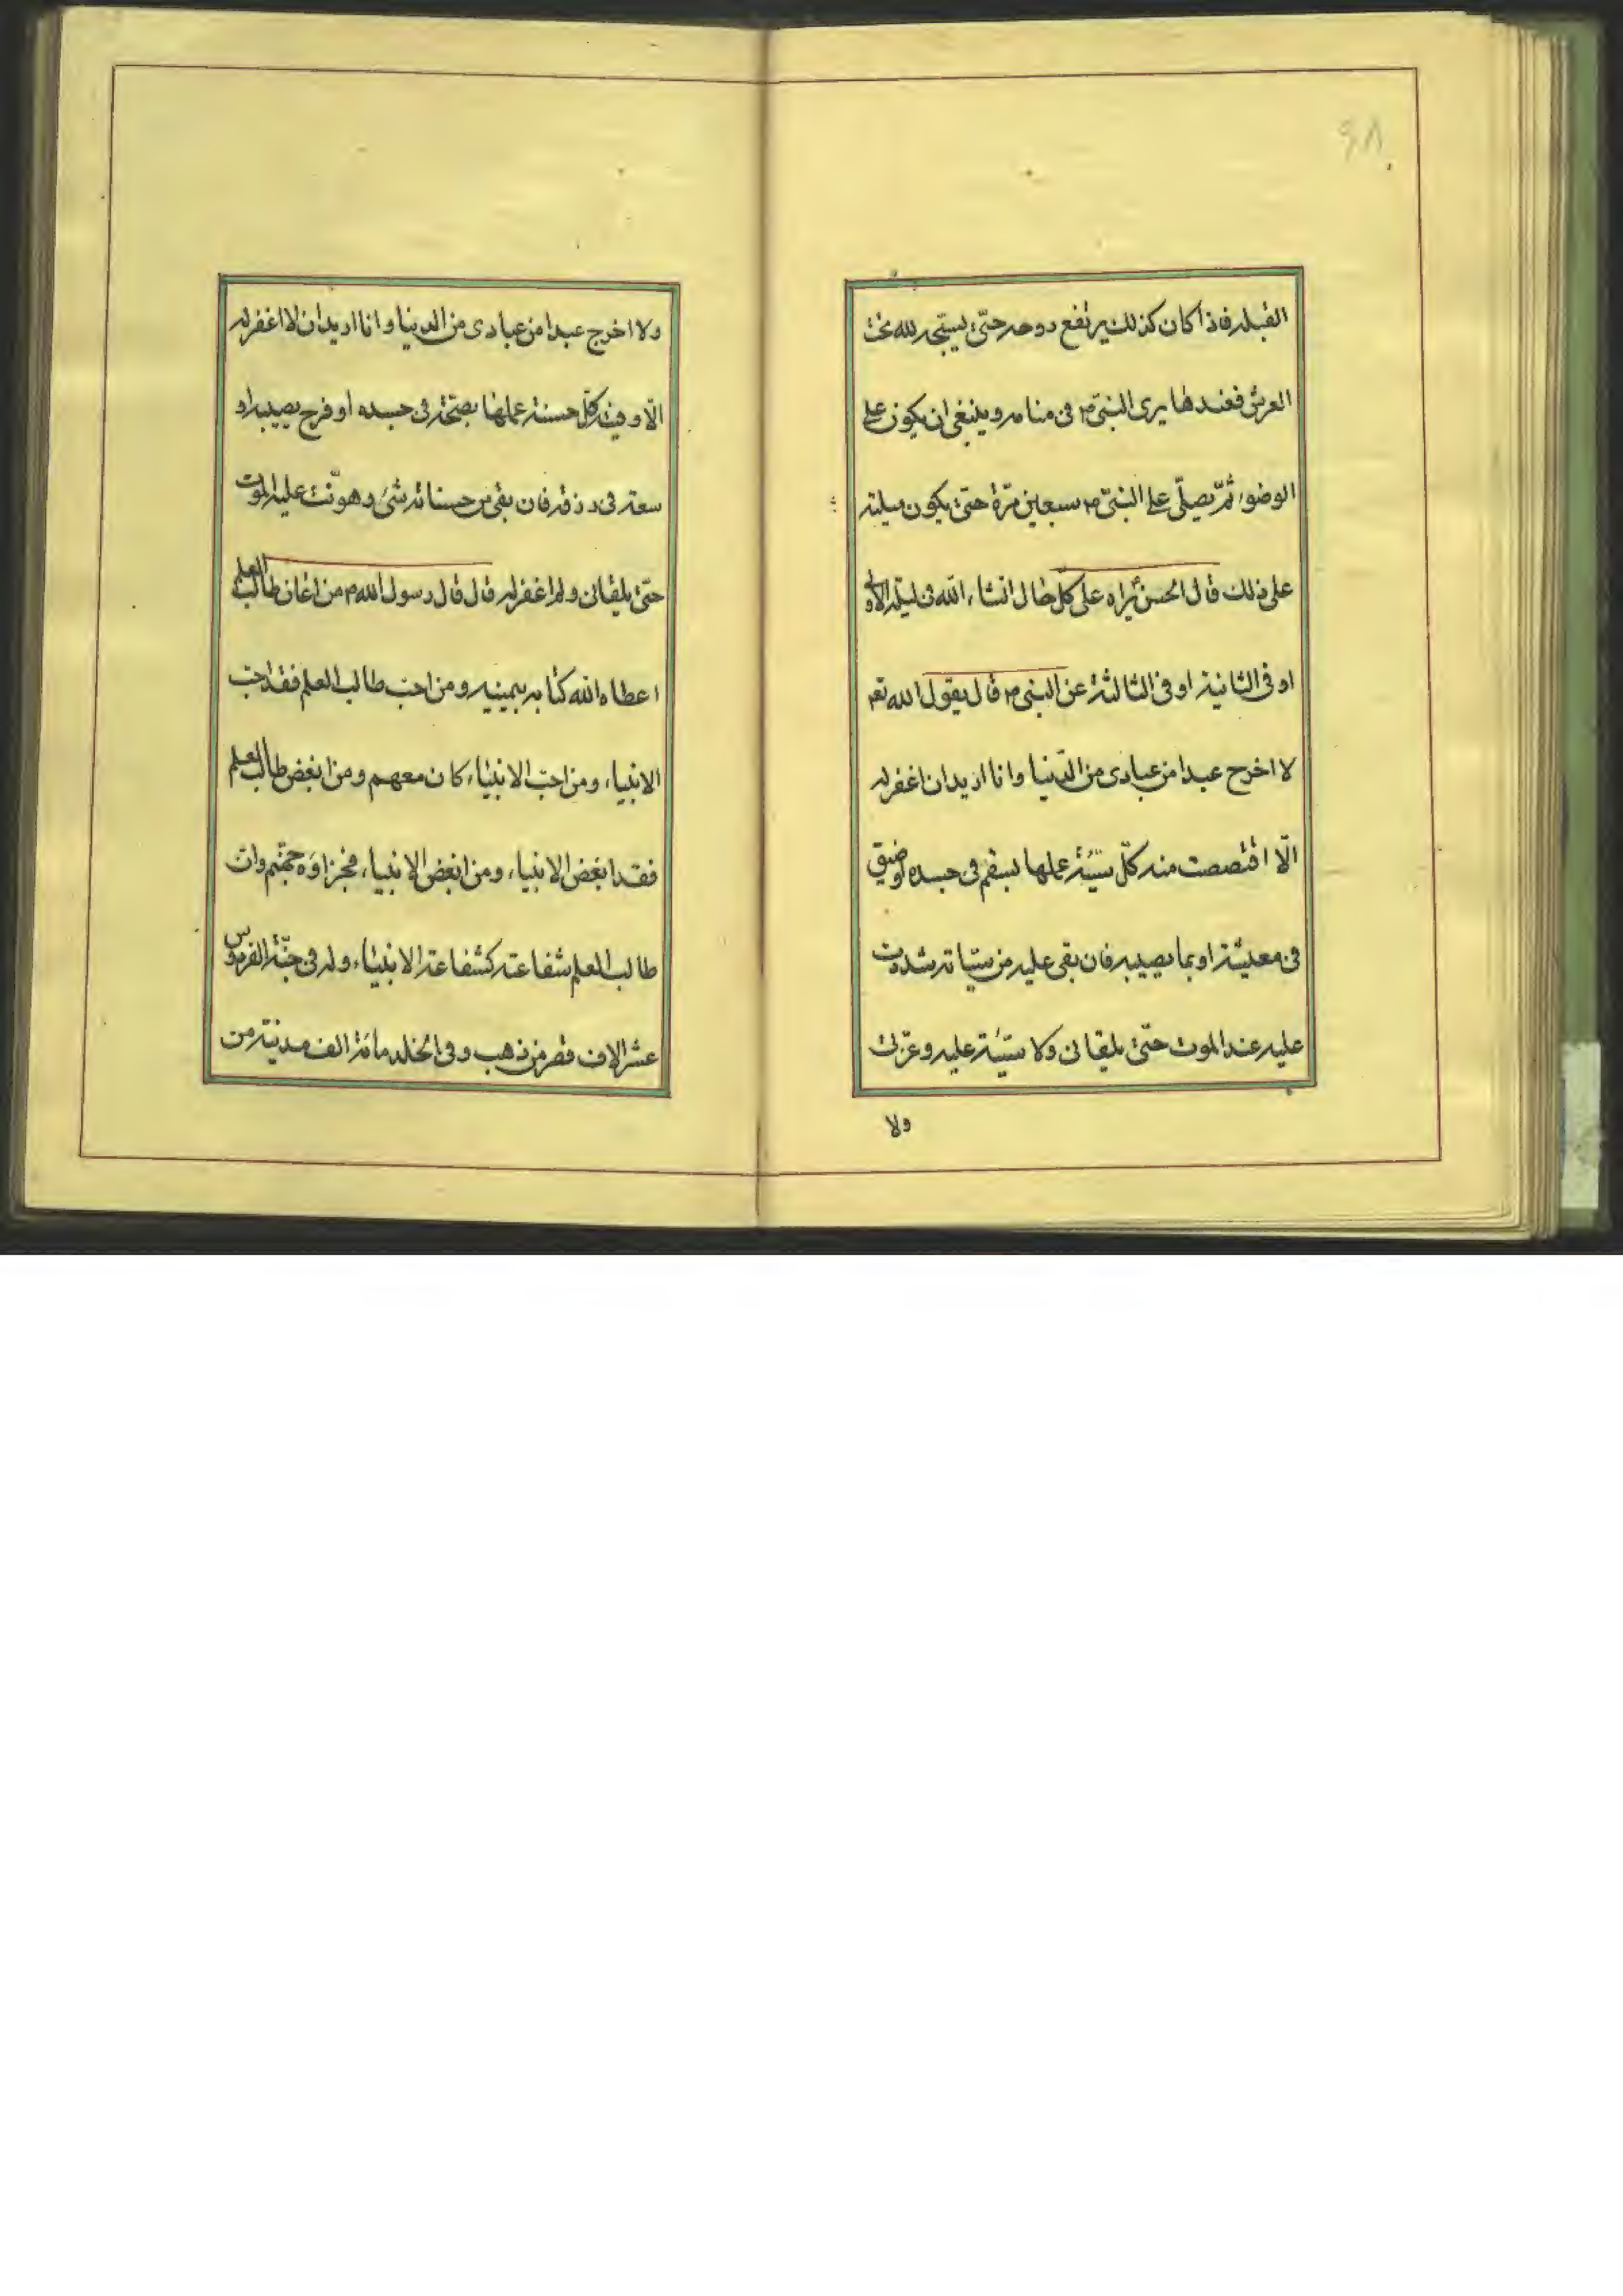 ٤٨
القبله فاذا كان كذلك يرتفع روحه حتّى يستجد لله تحت
العرش فعندها يرى النبىّ ص فى منامه وينبغى ان يكون على
الوضوء ثمّ يصلّى على النبىّ ص سبعين مرّة حتّى يكون ميلته
على ذلك قال الحسن يراه على كلّ حال انشاء الله فى ليلة الاولى
او فى الثانية او فى الثالثة عن النبى ص قال يقول الله تع
لا اخرج عبدا من عبادى من الدّنيا وانا اريد ان اغفر له
الّا اقتصصت منه كلّ سيّئة عملها بسقم فى جسده او ضيق
فى معيشة او بما يصيبه فان بقى عليه من سيّاته شددت
عليه عند الموت حتّى يلقانى ولا سيّئة عليه وعزّتى
ولا
ولا اخرج عبدا من عبادى من الدنيا وانا اريد ان لا اغفر له
الّا وفيته كلّ حسنة عملها بصحّة فى جسده او فرح يصيبه او
سعة فى رزقه فان بقى من حسناته شىء هوّنت عليه الموت
حتّى يلقانى ولم اغفر له قال قال رسول الله ص من اعان طالب العلم
اعطاه الله كتابه بيمينه ومن احبّ طالب العلم فقد احبّ
الانبياء ومن احبّ الانبياء كان معهم ومن ابغض طالب العلم
فقد ابغض الانبياء ومن ابغض الانبياء فجزاؤه جهنّم وانّ
طالب العلم شفاعته كشفاعة الانبياء وله فى جنّة الفردوس
عشر الاف قصر من ذهب وفى الخلد مائة الف مدينة من